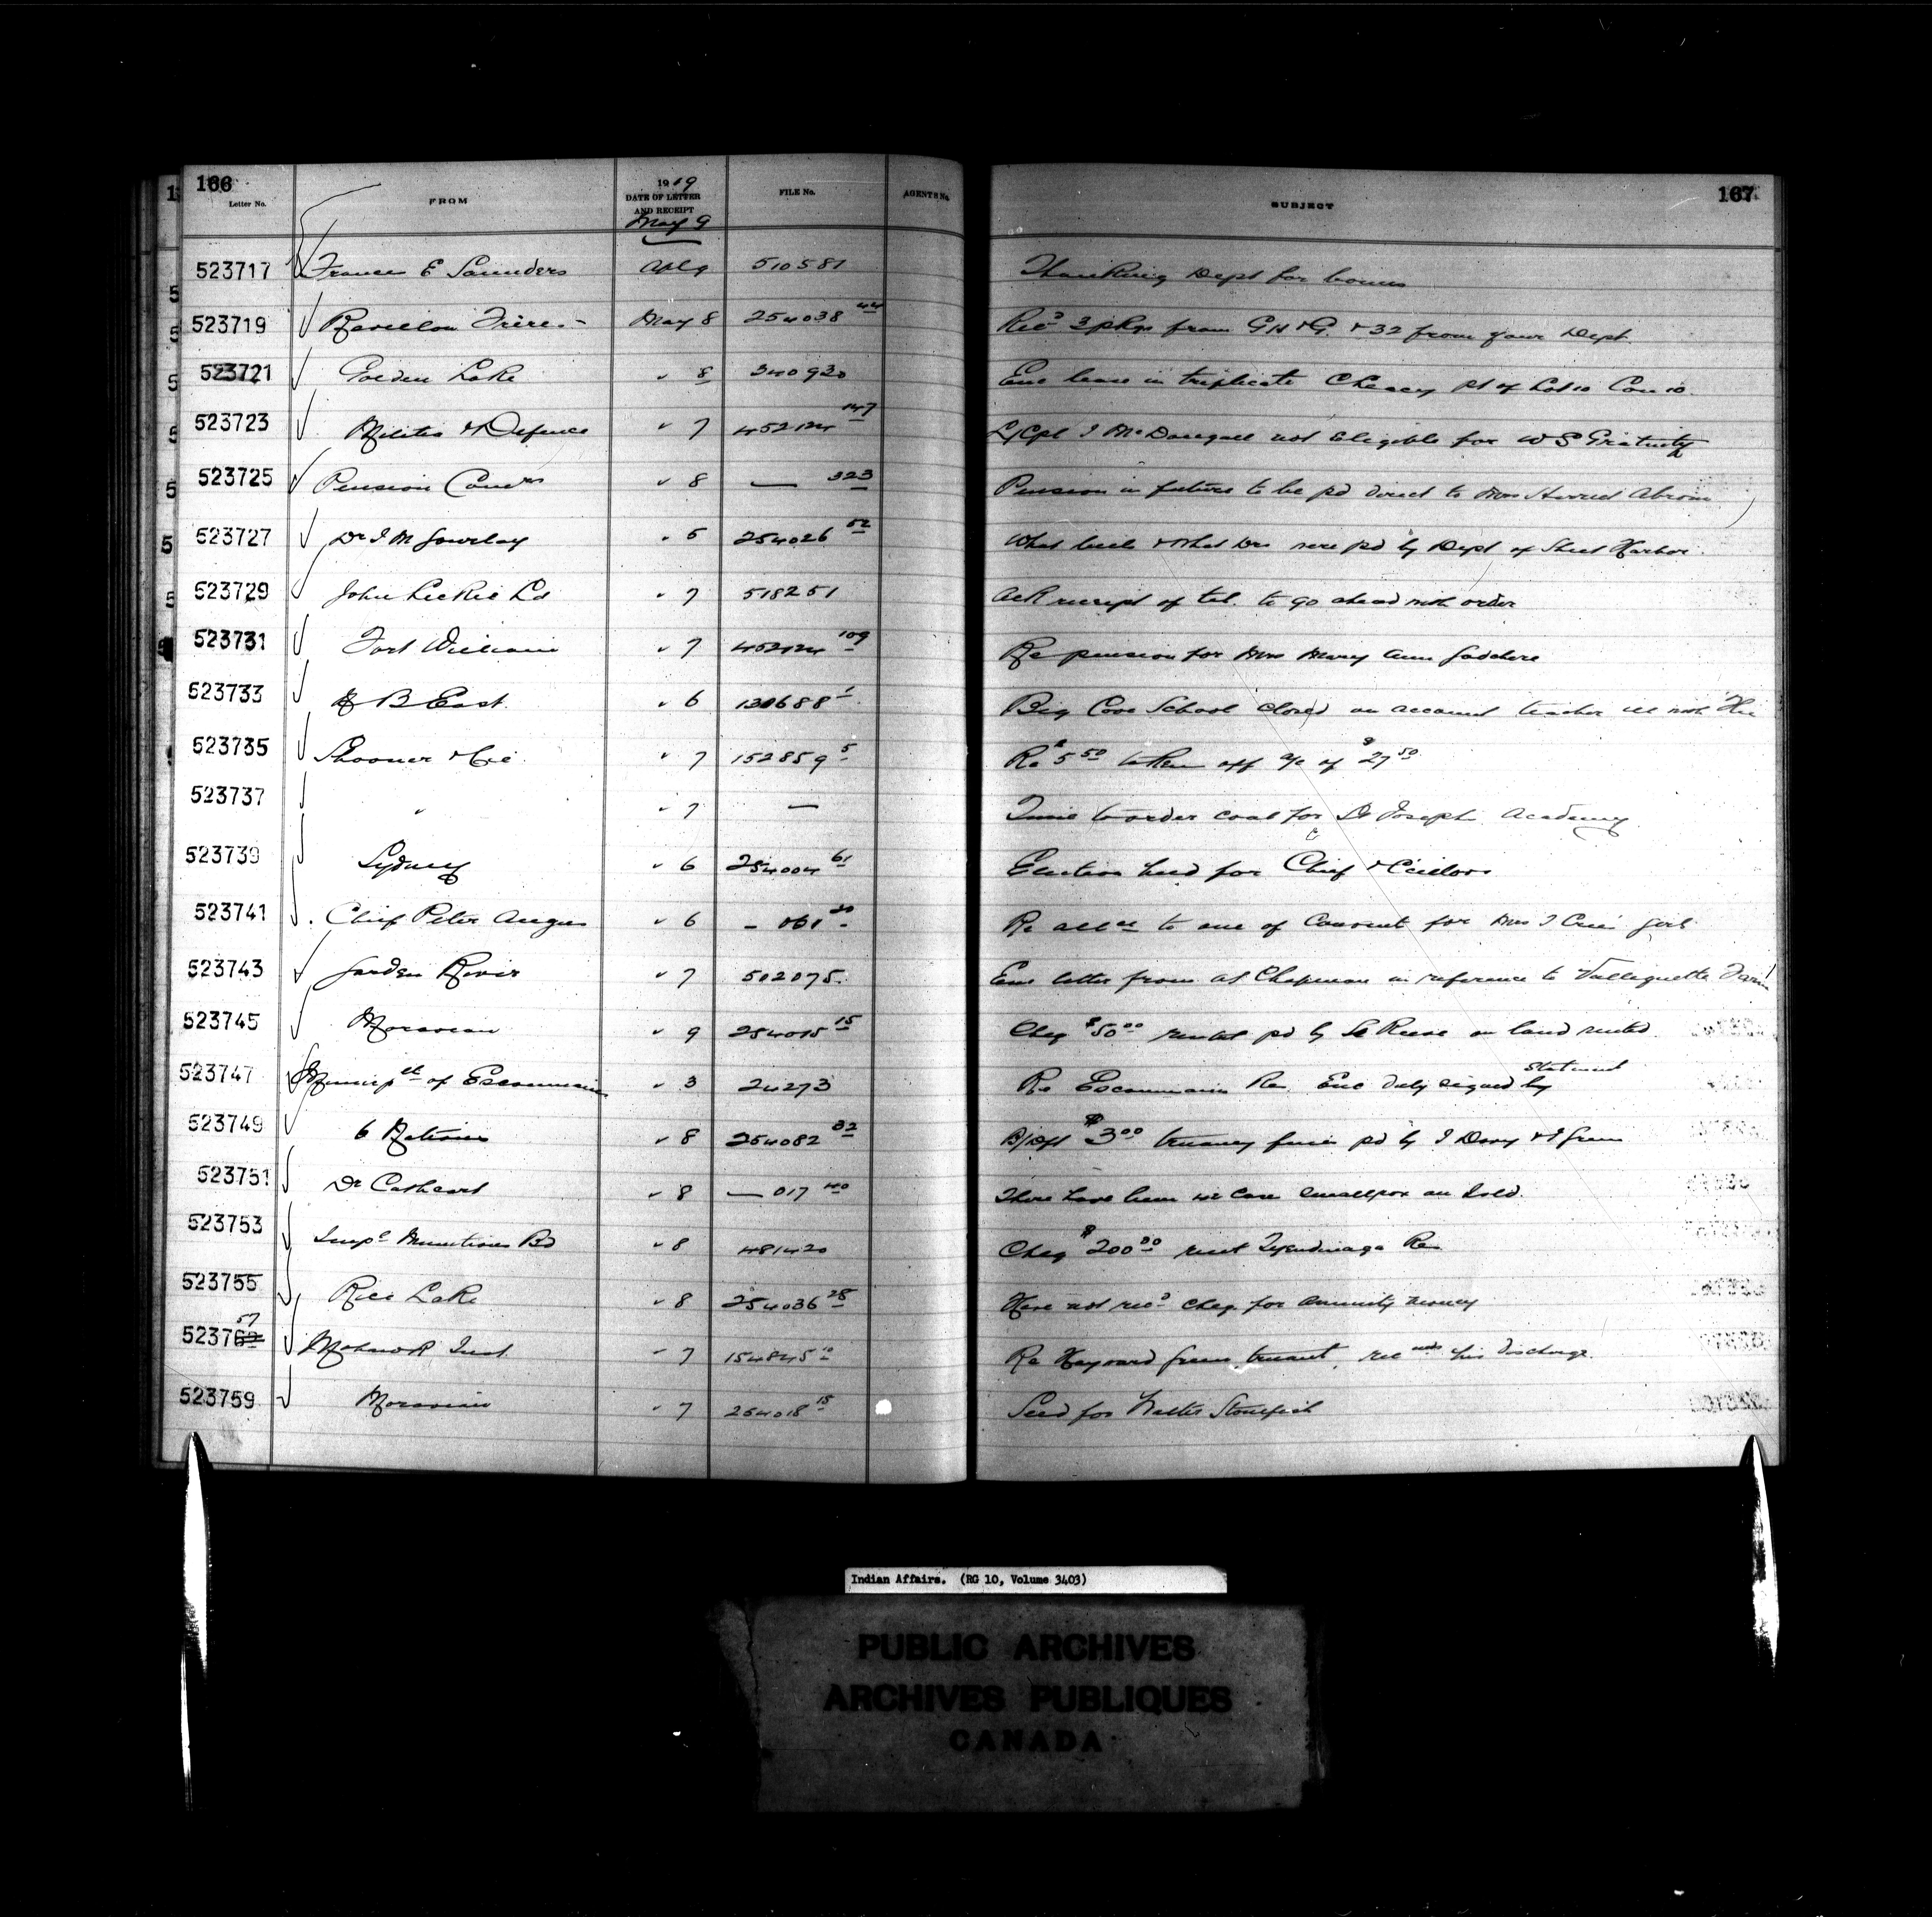 166
1919
Letter No. FROM DATE OF LETTER AND RECEIPT FILE No. AGENTS No. SUBJECT 167
May 9
523717 Frances E Saunders Apl 9 510581 Thanking Dept for bonus
523719 Revillon Freres May 8 254038 44 Recd 3 pkgs from G H & G. & 32 from your Dept
523721 Golden Lake " 8 340920 Enc lease in triplicate Cheney pt of Lot 10 Con 10.
523723 Militia & Defence " 7 452124 147 L/Cpl J McDougall not eligible for W S Gratuity
523725 Pension Comrs " 8 — 323 Pension in future to be pd direct to Mrs Abram
523727 Dr I M Gourlay " 5 254026 52 What & what Drs were pd by Dept of Sheet Harbor
523729 John Leckie Ld " 7 518251 Ack receipt of tel. to go ahead with order
523731 Fort William " 7 452124 109 Re pension for Mrs Mary Ann
523733 B East. " 6 130688 1 Big Cove School closed on account teacher ill with Flu
523735 Shooner & Cie " 7 152859 5 Re $5.50 taken off a/c of $27.50
523737 " " 7 — Time to order coal for St Joseph Academy
523739 Sydney " 6 254004 61 Election held for Chief & Ccillors
523741 Chief Peter Angus " 6 — 061 Re to one of Convent for Mrs J girl
523743 Garden River " 7 502075 Enc letter from at Chapman in reference to Farm
523745 Moravian " 9 254015 15 Cheq $50.00 rental pd by on land rented
523747 Municpal of Escoumain " 3 24273 Re Escoumain Res. Enc duly signed by
statement
523749 6 Nations " 8 254082 82 B/Dft $3.00 truancy fines pd by J Davy & J Green
523751 Dr Cathcart " 8 — 017 40 There have been no case smallpox on Isld.
523753 Impl Munitions Bd " 8 481420 Cheq $200.00 rent Tyendinaga Res
523755 Rice Lake " 8 254036 28 Have not recd cheq for annuity money
57
52376 Mohawk Inst. " 7 154845 10 Re Hayward Green truant, rec his discharge.
523759 Moravian " 7 254018 15 Seed for Walter Stonefish
Indian Affairs. (RG 10, Volume 3403)
PUBLIC ARCHIVES
ARCHIVES PUBLIQUES
CANADA